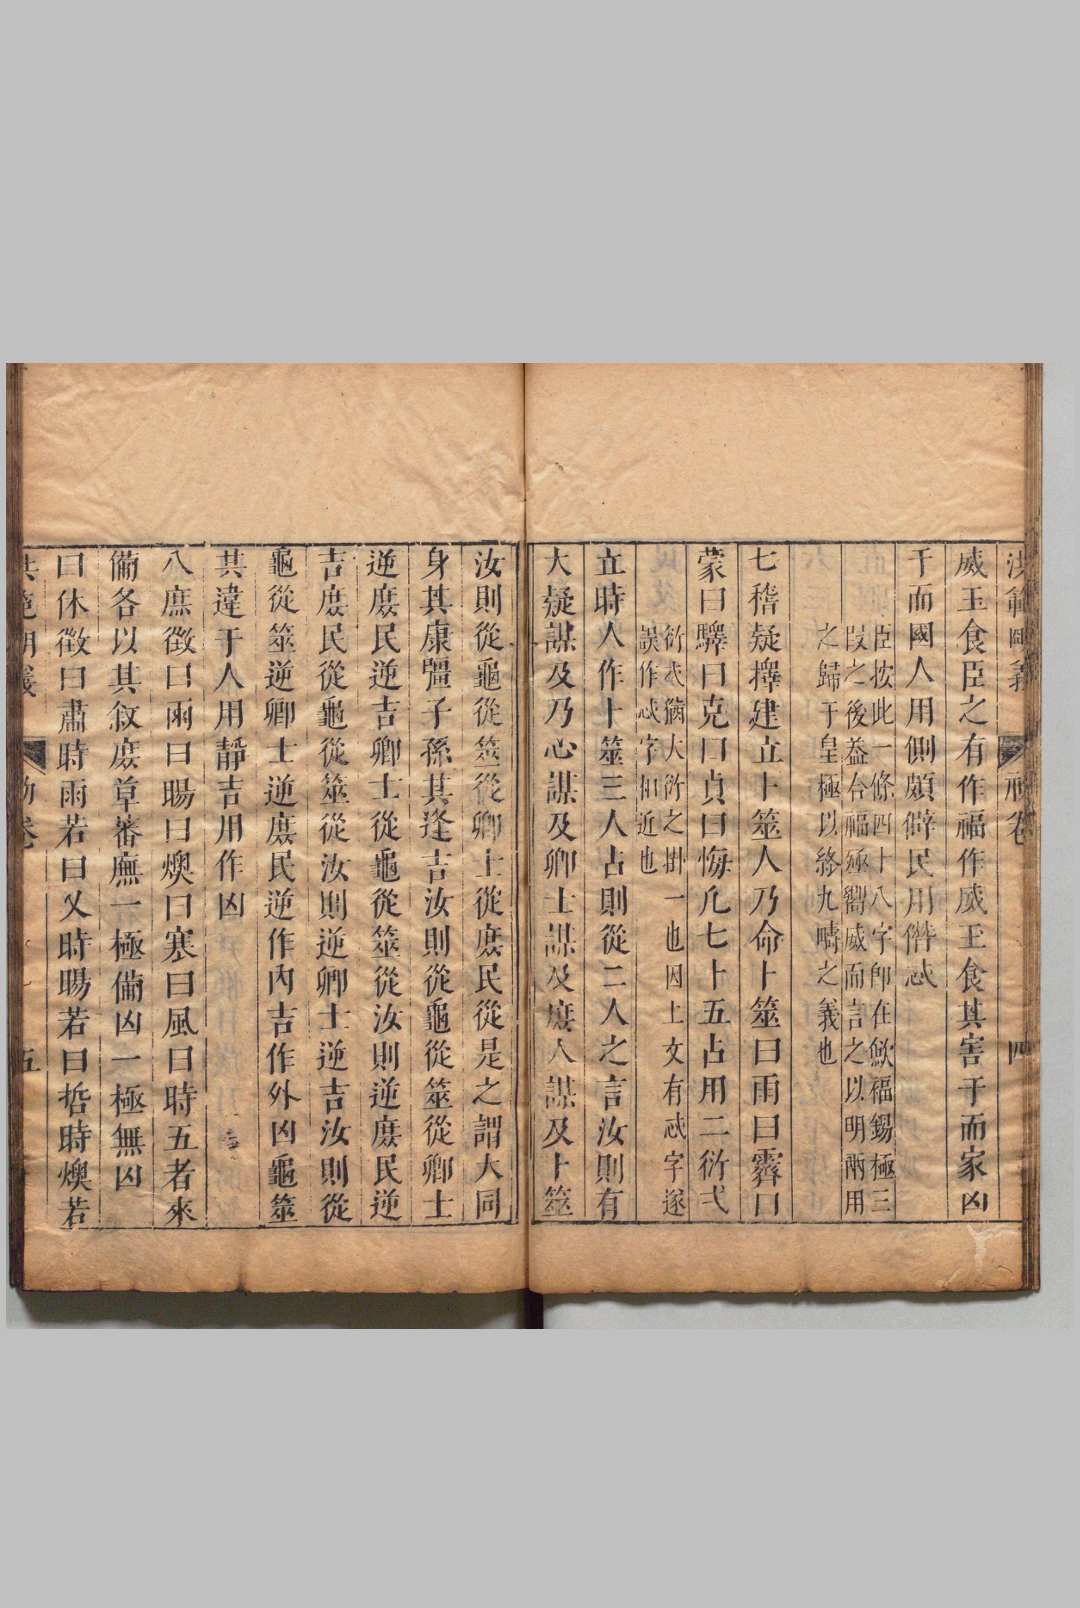 洪範明義 初卷 四
威玉食臣之有作福作威玉食其害于而家凶
于而國人用側頗僻民用僭忒
臣按此一條四十八字卽在歛福錫極三
段之後葢合福極嚮威而言之以明兩用
之歸于皇極以終九疇之義也
七稽疑擇建立卜筮人乃命卜筮曰雨曰霽曰
蒙曰驛曰克曰貞曰悔凡七卜五占用二衍弌
衍弌猶大衍之掛一也因上文有忒字遂
誤作忒字相近也
立時人作卜筮三人占則從二人之言汝則有
大疑謀及乃心謀及卿士謀及庶人謀及卜筮
汝則從龜從筮從卿士從庶民從是之謂大同
身其康彊子孫其逢吉汝則從龜從筮從卿士
逆庶民逆吉卿士從龜從筮從汝則逆庶民逆
吉庶民從龜從筮從汝則逆卿士逆吉汝則從
龜從筮逆卿士逆庶民逆作內吉作外凶龜筮
其違于人用靜吉用作凶
八庶徵曰雨曰暘曰燠曰寒曰風曰時五者來
備各以其敘庶草蕃廡一極備凶一極無凶
曰休徵曰肅時雨若曰乂時暘若曰哲時燠若
洪範明義 初卷 五